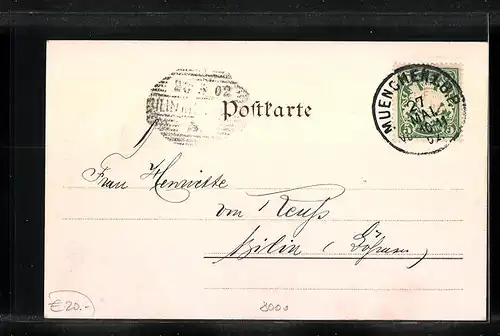 02
Postkarte
MUENCHEN
27
MAI
Frau Henriette
von Reuß
Bilin (Böhmen)
€20.-
8000